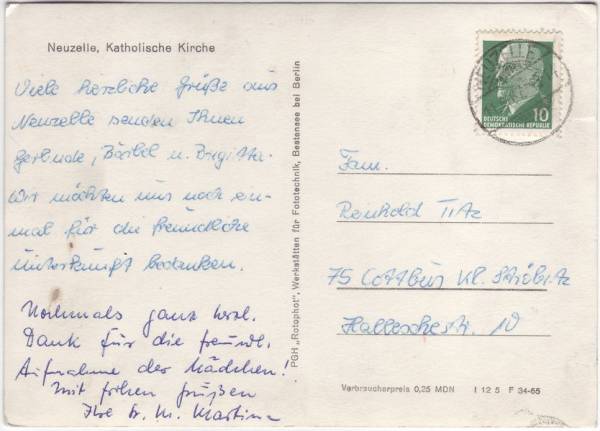 Neuzelle, Katholische Kirche
Viele herzliche Grüße aus
Neuzelle senden Ihnen
Gerlinde, Bärbel u. Brigitta.
Wir möchten uns noch ein-
mal für die freundliche
Unterkunft bedanken.
Nochmals ganz herzl.
Dank für die freundl.
Aufnahme der Mädchen!
Mit frohen Grüßen
Ihre Sr. M. Martina
PGH „Rotophot“, Werkstätten für Fototechnik, Bestensee bei Berlin
NEUZELLE
10
DEUTSCHE
DEMOKRATISCHE REPUBLIK
Fam.
Reinhold Titz
75 Cottbus Kl. Ströbitz
Halleschestr. 10
Verbraucherpreis 0,25 MDN I 12 5 F 34-65